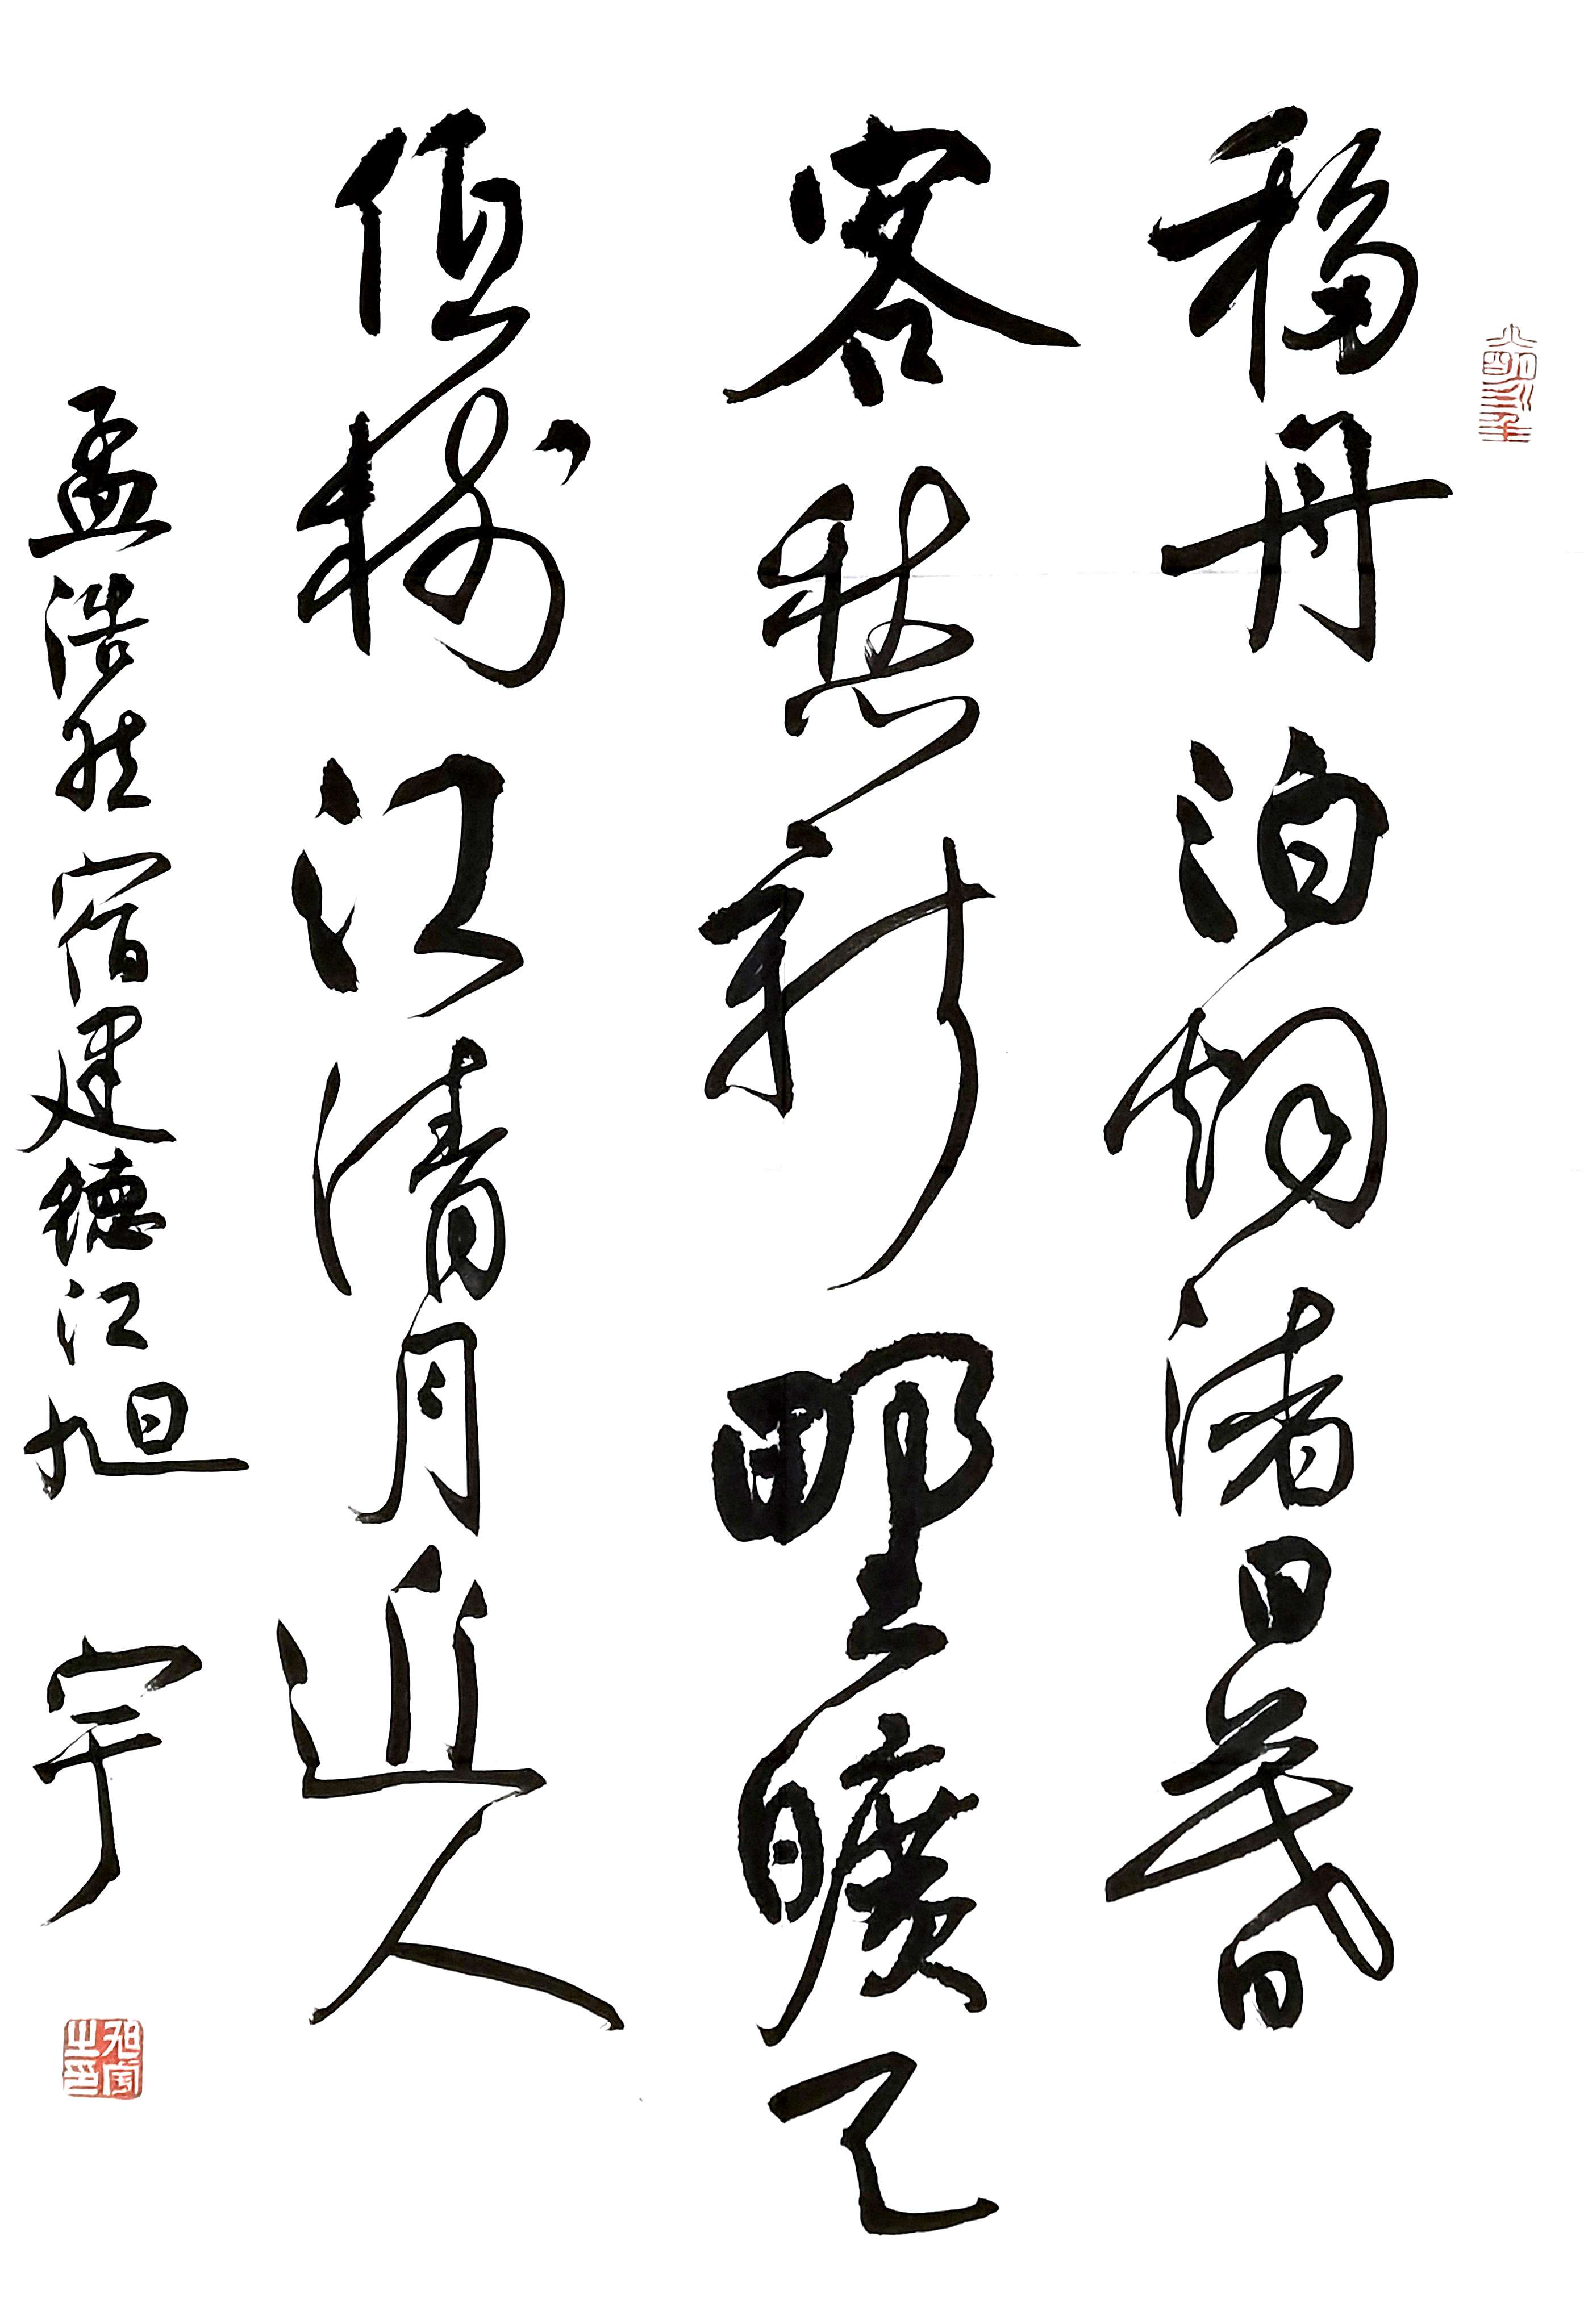 移舟泊烟渚日暮
客愁新野曠天
低樹江清月近人
孟浩然宿建德江旭宇
旭宇之印